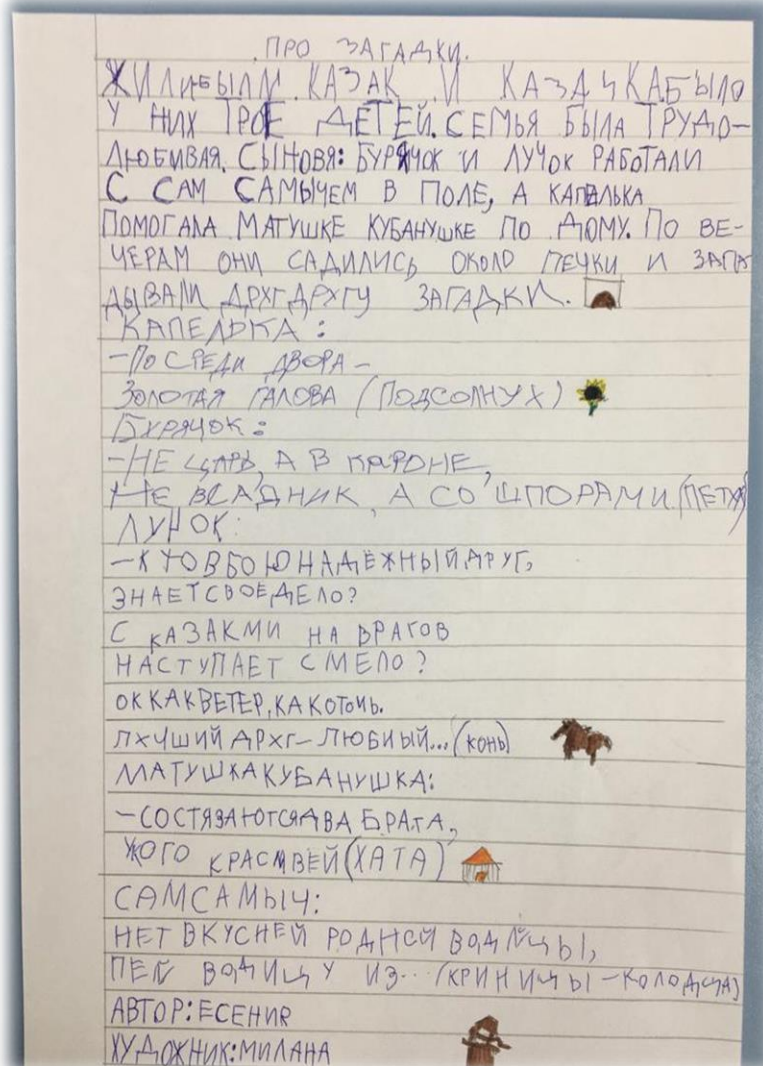 ПРО ЗАГАДКИ.
ЖИЛИБЫЛИ КАЗАК И КАЗАЧКАБЫЛО
У НИХ ТРОЕ ДЕТЕЙ. СЕМЬЯ БЫЛА ТРУДО-
ЛЮБИВАЯ. СЫНОВЯ: БУРЯЧОК И ЛУЧОК РАБОТАЛИ
С САМ САМЫЧЕМ В ПОЛЕ, А КАПЕЛЬКА
ПОМОГАЛА МАТУШКЕ КУБАНУШКЕ ПО ДОМУ. ПО ВЕ-
ЧЕРАМ ОНИ САДИЛИСЬ ОКОЛО ПЕЧКИ И ЗАГА
ДЫВАЛИ ДРУГ ДРУГУ ЗАГАДКИ.
КАПЕЛЬКА:
-ПОСРЕДИ ДВОРА-
ЗОЛОТАЯ ГАЛОВА (ПОДСОЛНУХ)
БУРЯЧОК:
-НЕ ЦАРЬ, А В КАРОНЕ,
НЕ ВСАДНИК, А СО ШПОРАМИ.(ПЕТУХ)
ЛУЧОК:
-КТОВБОЮНАДЁЖНЫЙДРУГ,
ЗНАЕТСВОЕДЕЛО?
С КАЗАКМИ НА ВРАГОВ
НАСТУПАЕТ СМЕЛО?
ОККАКВЕТЕР, КАКОТОНЬ.
ЛУЧШИЙ ДРУГ-ЛЮБИЫЙ...(КОНЬ)
МАТУШКАКУБАНУШКА:
-СОСТЯЗАЮТСЯДВА БРАТА,
УКОГО КРАСИВЕЙ(ХАТА)
САМСАМЫЧ:
НЕТ ВКУСНЕЙ РОДНОЙ ВОДИЦЫ,
ПЕЙ ВОДИЦУ ИЗ...(КРИНИЦЫ-КОЛОДЦА)
АВТОР:ЕСЕНИЯ
ХУДОЖНИК:МИЛАНА